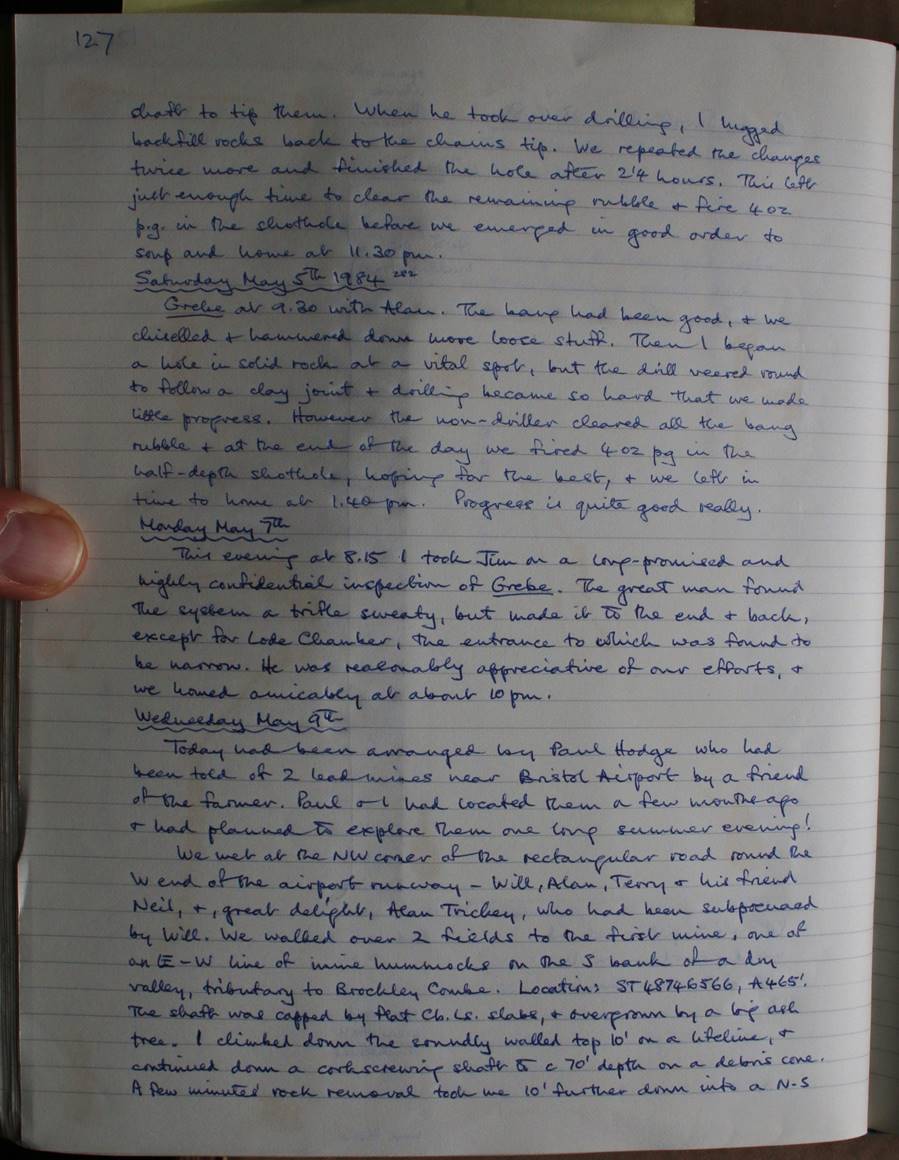 127
shaft to tip them. When he took over drilling, I lugged
backfill rocks back to the chains tip. We repeated the changes
twice more and finished the hole after 2¼ hours. This left
just enough time to clear the remaining rubble + fire 4oz
p.g. in the shothole before we emerged in good order to
soup and home at 11.30 pm.
Saturday May 5th 1984 282
Grebe at 9.30 with Alan. The bang had been good, + we
chiselled + hammered down more loose stuff. Then I began
a hole in solid rock at a vital spot, but the drill veered round
to follow a clay joint + drilling became so hard that we made
little progress. However the non-driller cleared all the bang
rubble + at the end of the day we fired 4oz pg in the
half-depth shothole, hoping for the best, + we left in
time to home at 1.40 pm. Progress is quite good really.
Monday May 7th
This evening at 8.15 I took Jim on a long-promised and
highly confidential inspection of Grebe. The great man found
the system a trifle sweaty, but made it to the end + back,
except for Lode Chamber, the entrance to which was found to
be narrow. He was reasonably appreciative of our efforts, +
we homed amicably at about 10 pm.
Wednesday May 9th
Today had been arranged by Paul Hodge who had
been told of 2 lead mines near Bristol Airport by a friend
of the farmer. Paul + I had located them a few months ago
+ had planned to explore them one long summer evening!
We met at the NW corner of the rectangular road round the
W end of the airport runway - Will, Alan, Terry + his friend
Neil, +, great delight, Alan Trickey, who had been subpoenaed
by Will. We walked over 2 fields to the first mine, one of
an E-W line of mine hummocks on the S bank of a dry
valley, tributary to Brockley Combe. Location: ST 48746566, A465'.
The shaft was capped by flat Cb. Ls. slabs, + overgrown by a big ash
tree. I climbed down the soundly walled top 10' on a lifeline, +
continued down a corkscrewing shaft to c 70' depth on a debris cone.
A few minutes rock removal took me 10' further down into a N-S